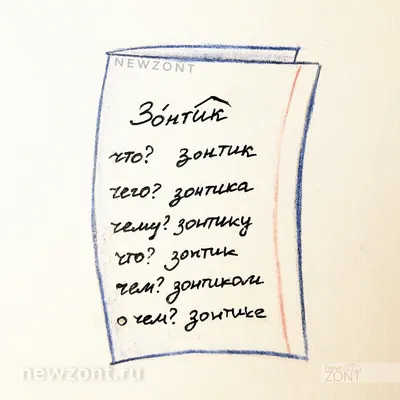 NEWZONT
Зо́нтик
что? зонтик
чего? зонтика
чему? зонтику
что? зонтик
чем? зонтиком
о чем? зонтике
newzont.ru
NEW
ZONT